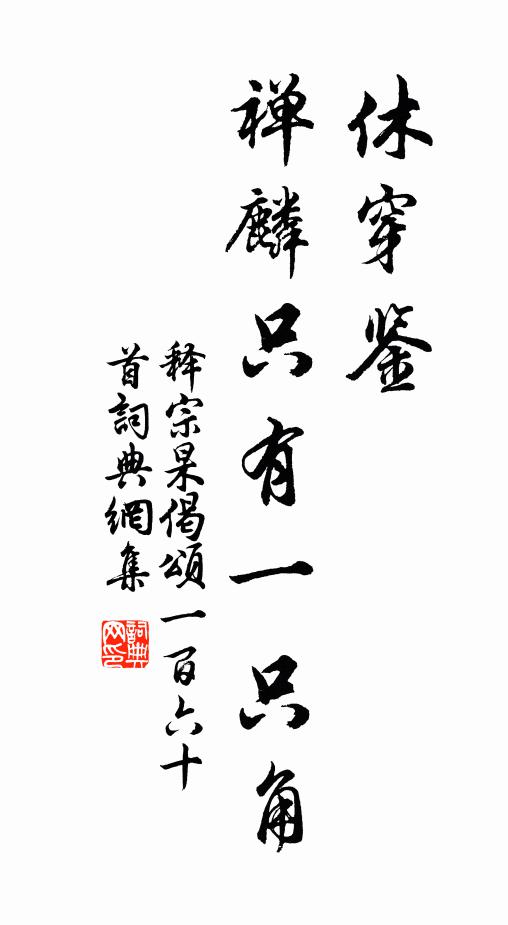 休穿鉴
禅麟只有一只角
释宗杲偈頌一百六十
首詞典網集
詞典网印